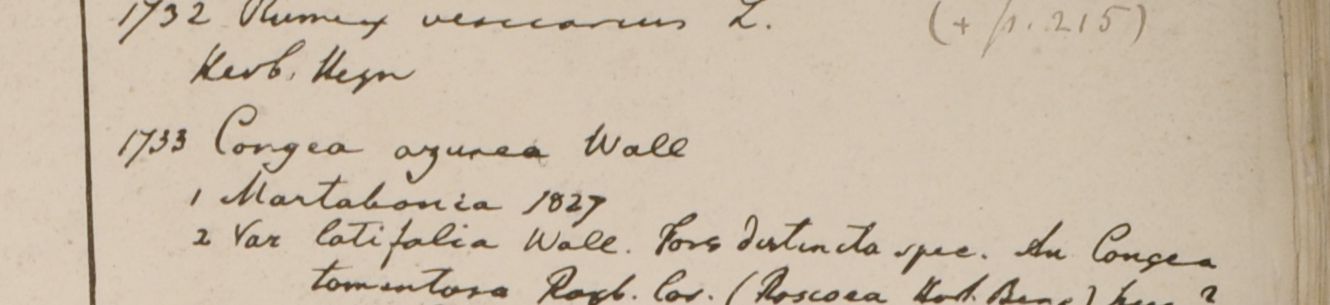 1732 Rumex vesicarius L. (+ p. 215)
Herb. Heyn
1733 Congea azurea Wall
1 Martabania 1827
2 Var latifolia Wall. Fors distincta spec. An Congea
tomentosa Roxb. Cor. (Roscoea Hort. Beng)